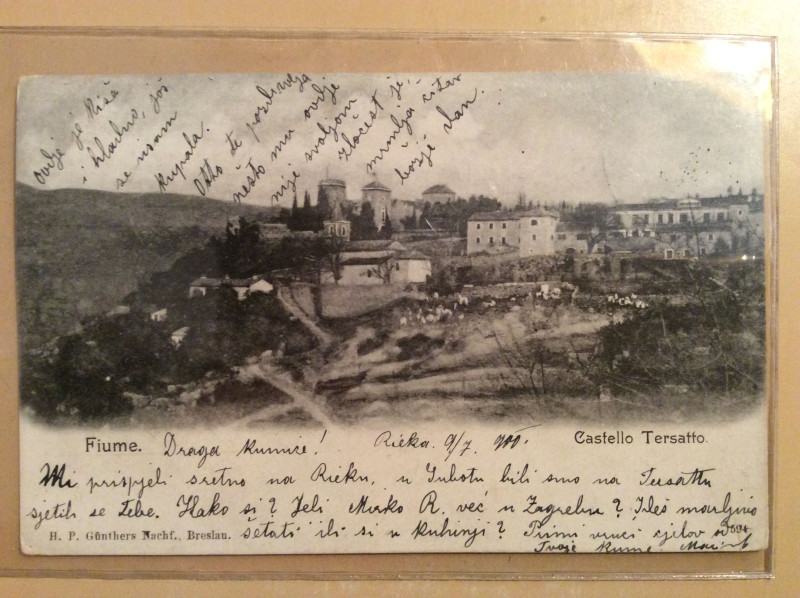 ovdje je kiša
i hladno, još
se nisam
kupala.
Otto te pozdravlja
nešto mu ovdje
nije s voljom
zločest je,
mrmlja čitav
božji dan.
Fiume. Draga kumice! Rieka. 9/7. 900. Castello Tersatto.
Mi prispjeli sretno na Rieku, u Subotu bili smo na Tersattu
sjetih se Tebe. Kako si? Jeli Mirko R. već u Zagrebu? Ideš marljivo
šetati ili si u kuhinji? Primi vruci cjelov od
H. P. Günthers Nachf., Breslau.
Tvoje kume